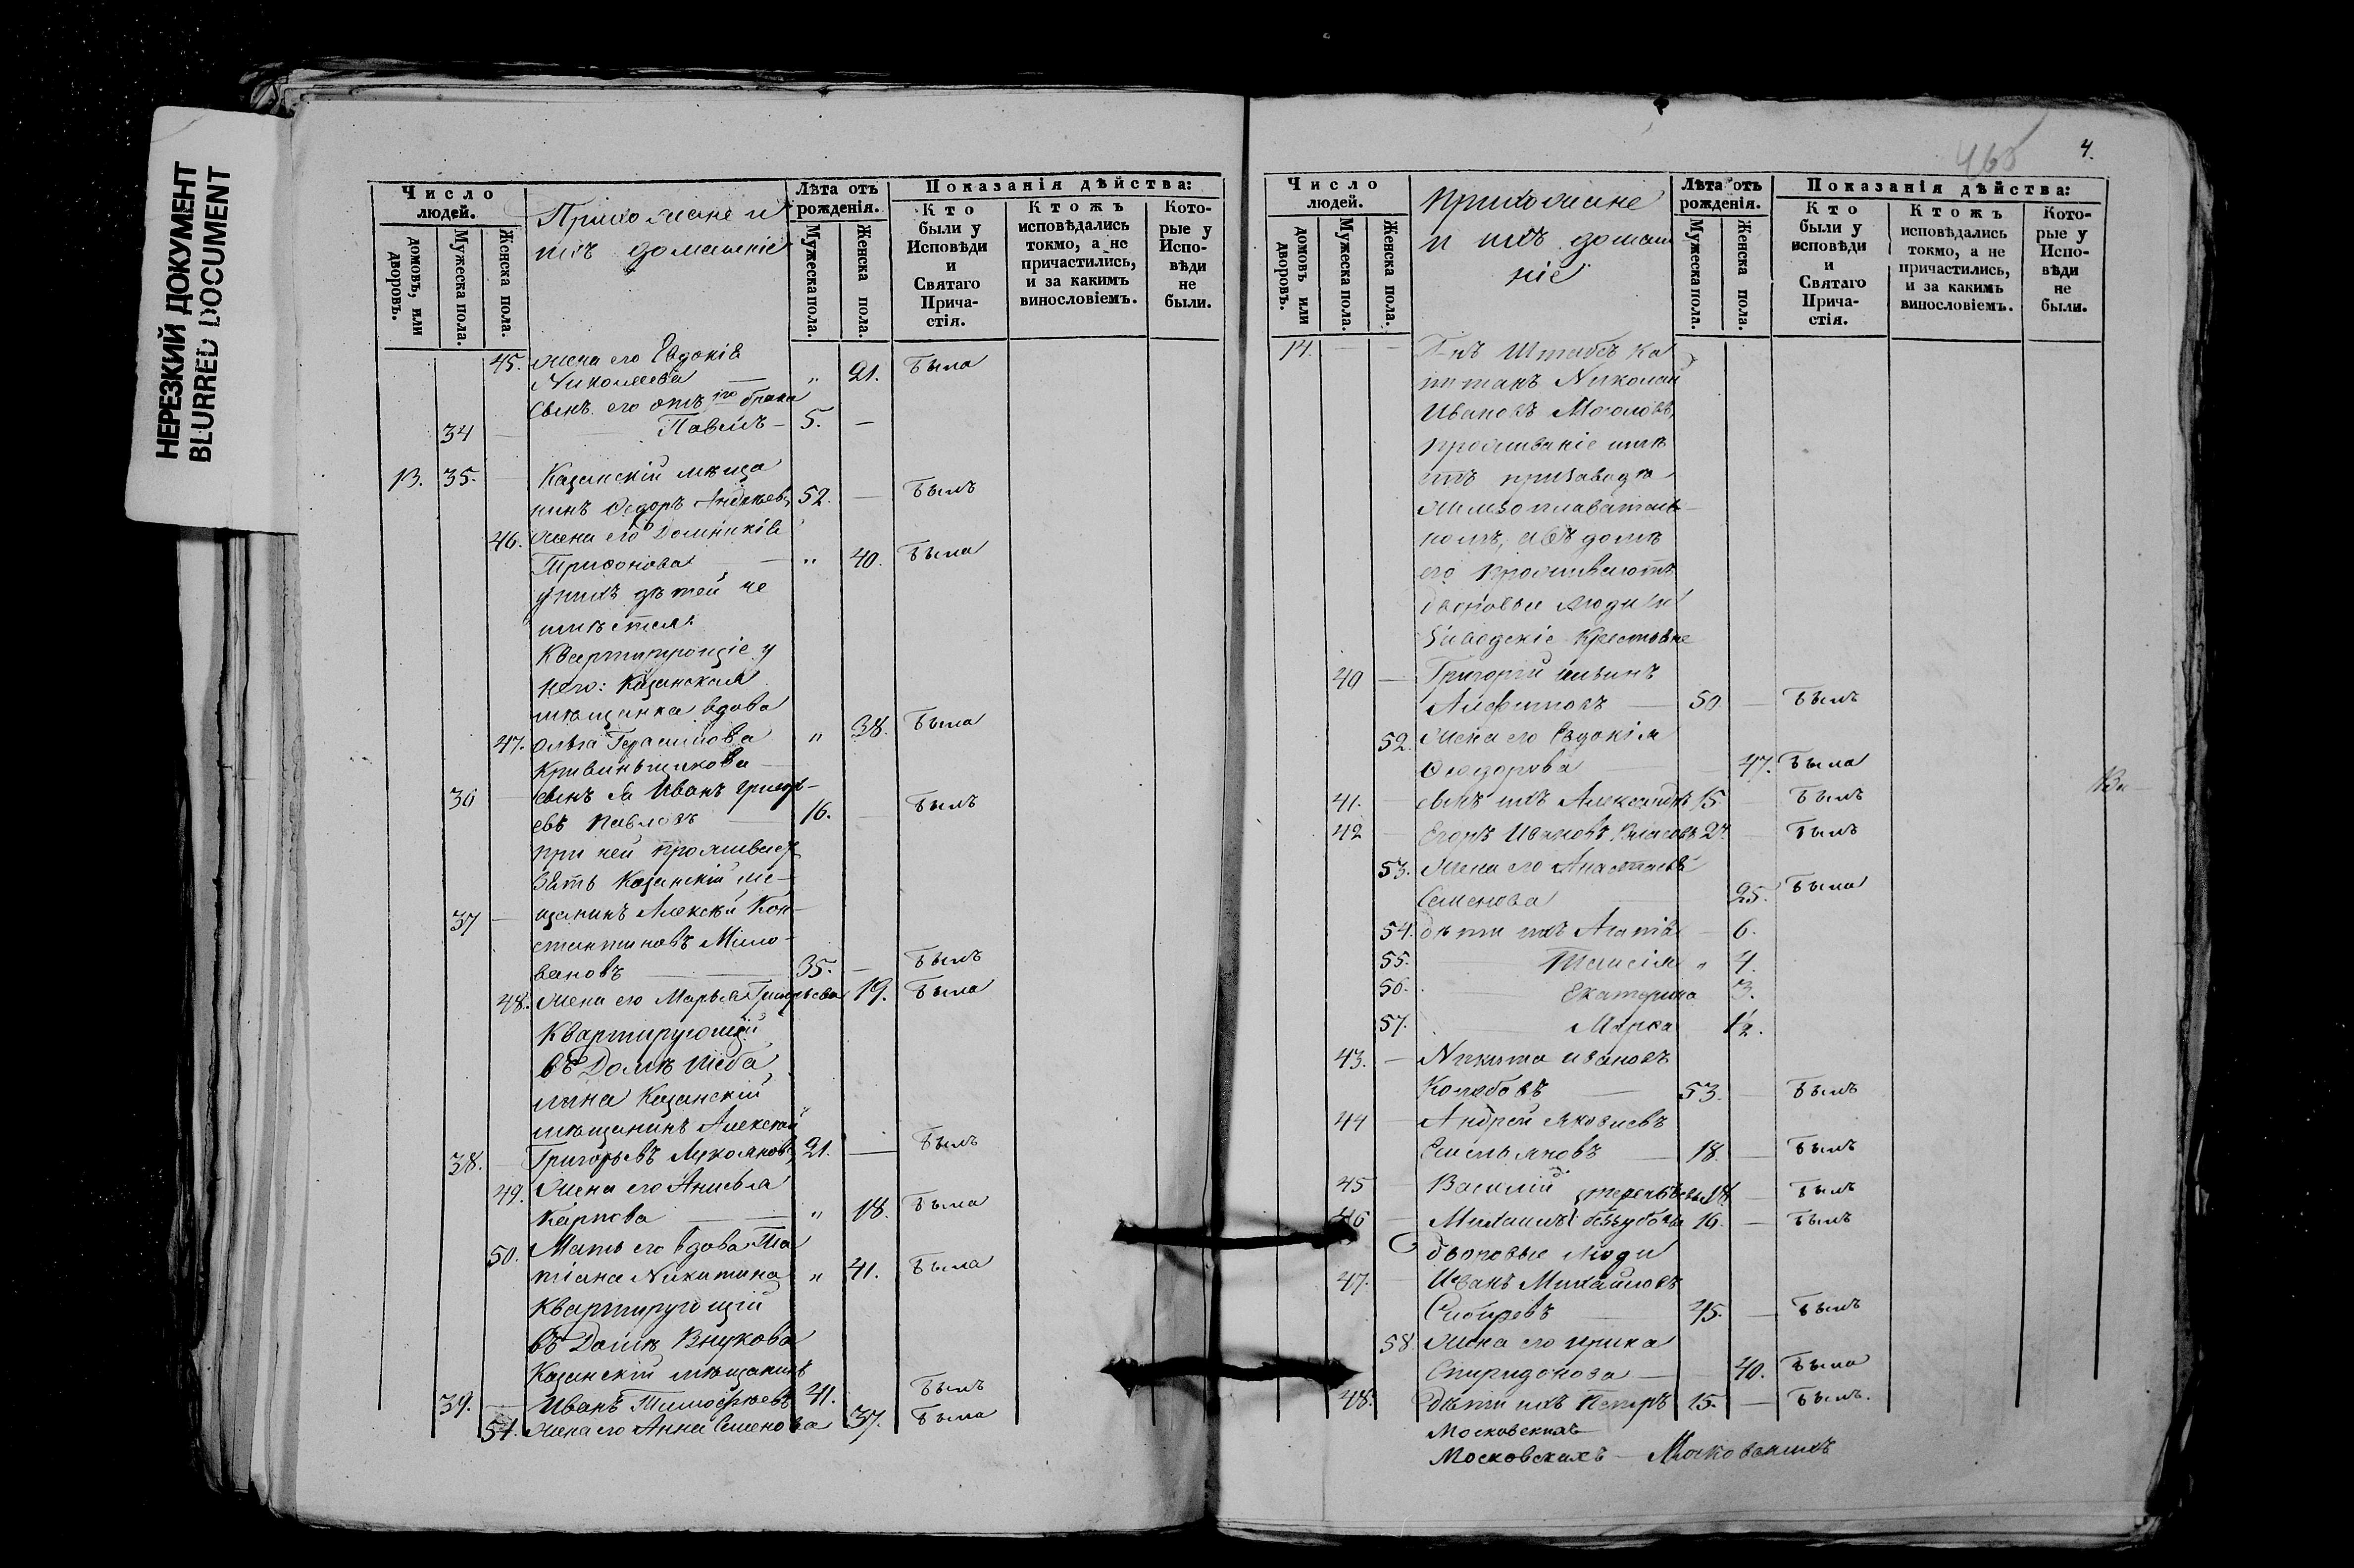 НЕРЕЗКИЙ ДОКУМЕНТ
BLURRED DOCUMENT
Число людей.
домовъ, или дворовъ.
Мужеска пола.
Женска пола.
Прихожане и
ихъ домашніе
Лѣта отъ рожденія.
Мужеска пола.
Женска пола.
Показанія дѣйства:
Кто были у Исповѣди и Святаго Прича-стія.
Ктожъ исповѣдались токмо, а не причастились, и за какимъ винословіемъ.
Кото-рые у Испо-вѣди не были.
45. жена его Евдокія
Николаева — „ 21. Была
Сынъ его отъ 1го брака
34 — Павелъ — 5. —
13. 35. — Казанскій мѣща
нинъ Ѳедоръ 52. — Былъ
46. жена его Домникія
Трифонова — „ 40. Была
у нихъ дѣтей не
имѣется.
Квартирующіе у
него: Казанская
мѣщанка вдова
47. Ольга Герасимова „ 38. Была
36 — сынъ ея Иванъ Григорь-
евъ Павловъ — 16. — Былъ
при ней проживает
Зять Казанскій ме-
37 — щанинъ Алексѣй Кон-
стантиновъ Мило-
вановъ — 35. — Былъ
48. жена его Марья Григорьева 19. Была
Квартирующій
въ Домѣ Шеба
лина Казанскій
мѣщанинъ Алексѣй
38. — Григорьевъ 21. — Былъ
49. Жена его Анисья
Карпова — „ 18. Была
50. Мать его вдова Та
тіана Никитина „ 41. Была
Квартирующій
въ Домѣ Внукова
Казанскій мѣщанинъ
39. — Иванъ Тимофѣевъ 41. Былъ
51. жена его Анна Семенова 37. Была
4.
Число людей.
домовъ или дворовъ.
Мужеска пола.
Женска пола.
Прихожане
и ихъ домаш
ніе
Лѣта отъ рожденія.
Мужеска пола.
Женска пола.
Показанія дѣйства:
Кто были у исповѣди и Святаго Прича-стія.
Ктожъ исповѣдались токмо, а не причастились, и за какимъ винословіемъ.
Кото-рые у Испо-вѣди не были.
14. — — Г-нъ Штабсъ Ка
питанъ Николай
Ивановъ
проживаніе имѣ
етъ при заводѣ
номъ, а въ домѣ
его проживаютъ
дворовые люди и
Заводскіе Крестьяне
40 — Григорій Ильинъ
— 50 — Былъ
52. Жена его Евдокія
Ѳеодорова — 47. Была
41. — сынъ ихъ Александръ 15. — Былъ
42 — Егоръ Ивановъ Власовъ 27. — Былъ
53. Жена его Анастасія
Семенова — 25. Была
54. дѣти ихъ Агапія — 6.
55. — Таисія „ 4.
56. Екатерина 3.
57. — Марѳа — 1½.
43. — Никита Ивановъ
— 53. — Былъ
44 — Андрей Яковлевъ
Емельяновъ — 18. — Былъ
45 Василій Терентьевы 18 — Былъ
46 — Михаилъ Беззубовы 16. — Былъ
дворовые люди
47. — Иванъ Михайловъ
Сибиревъ — 45. — Былъ
58. Жена его Ирина
Спиридонова — 40. Была
48. Дѣти ихъ Петръ 15. — Былъ.
Московскихъ
Московскихъ —